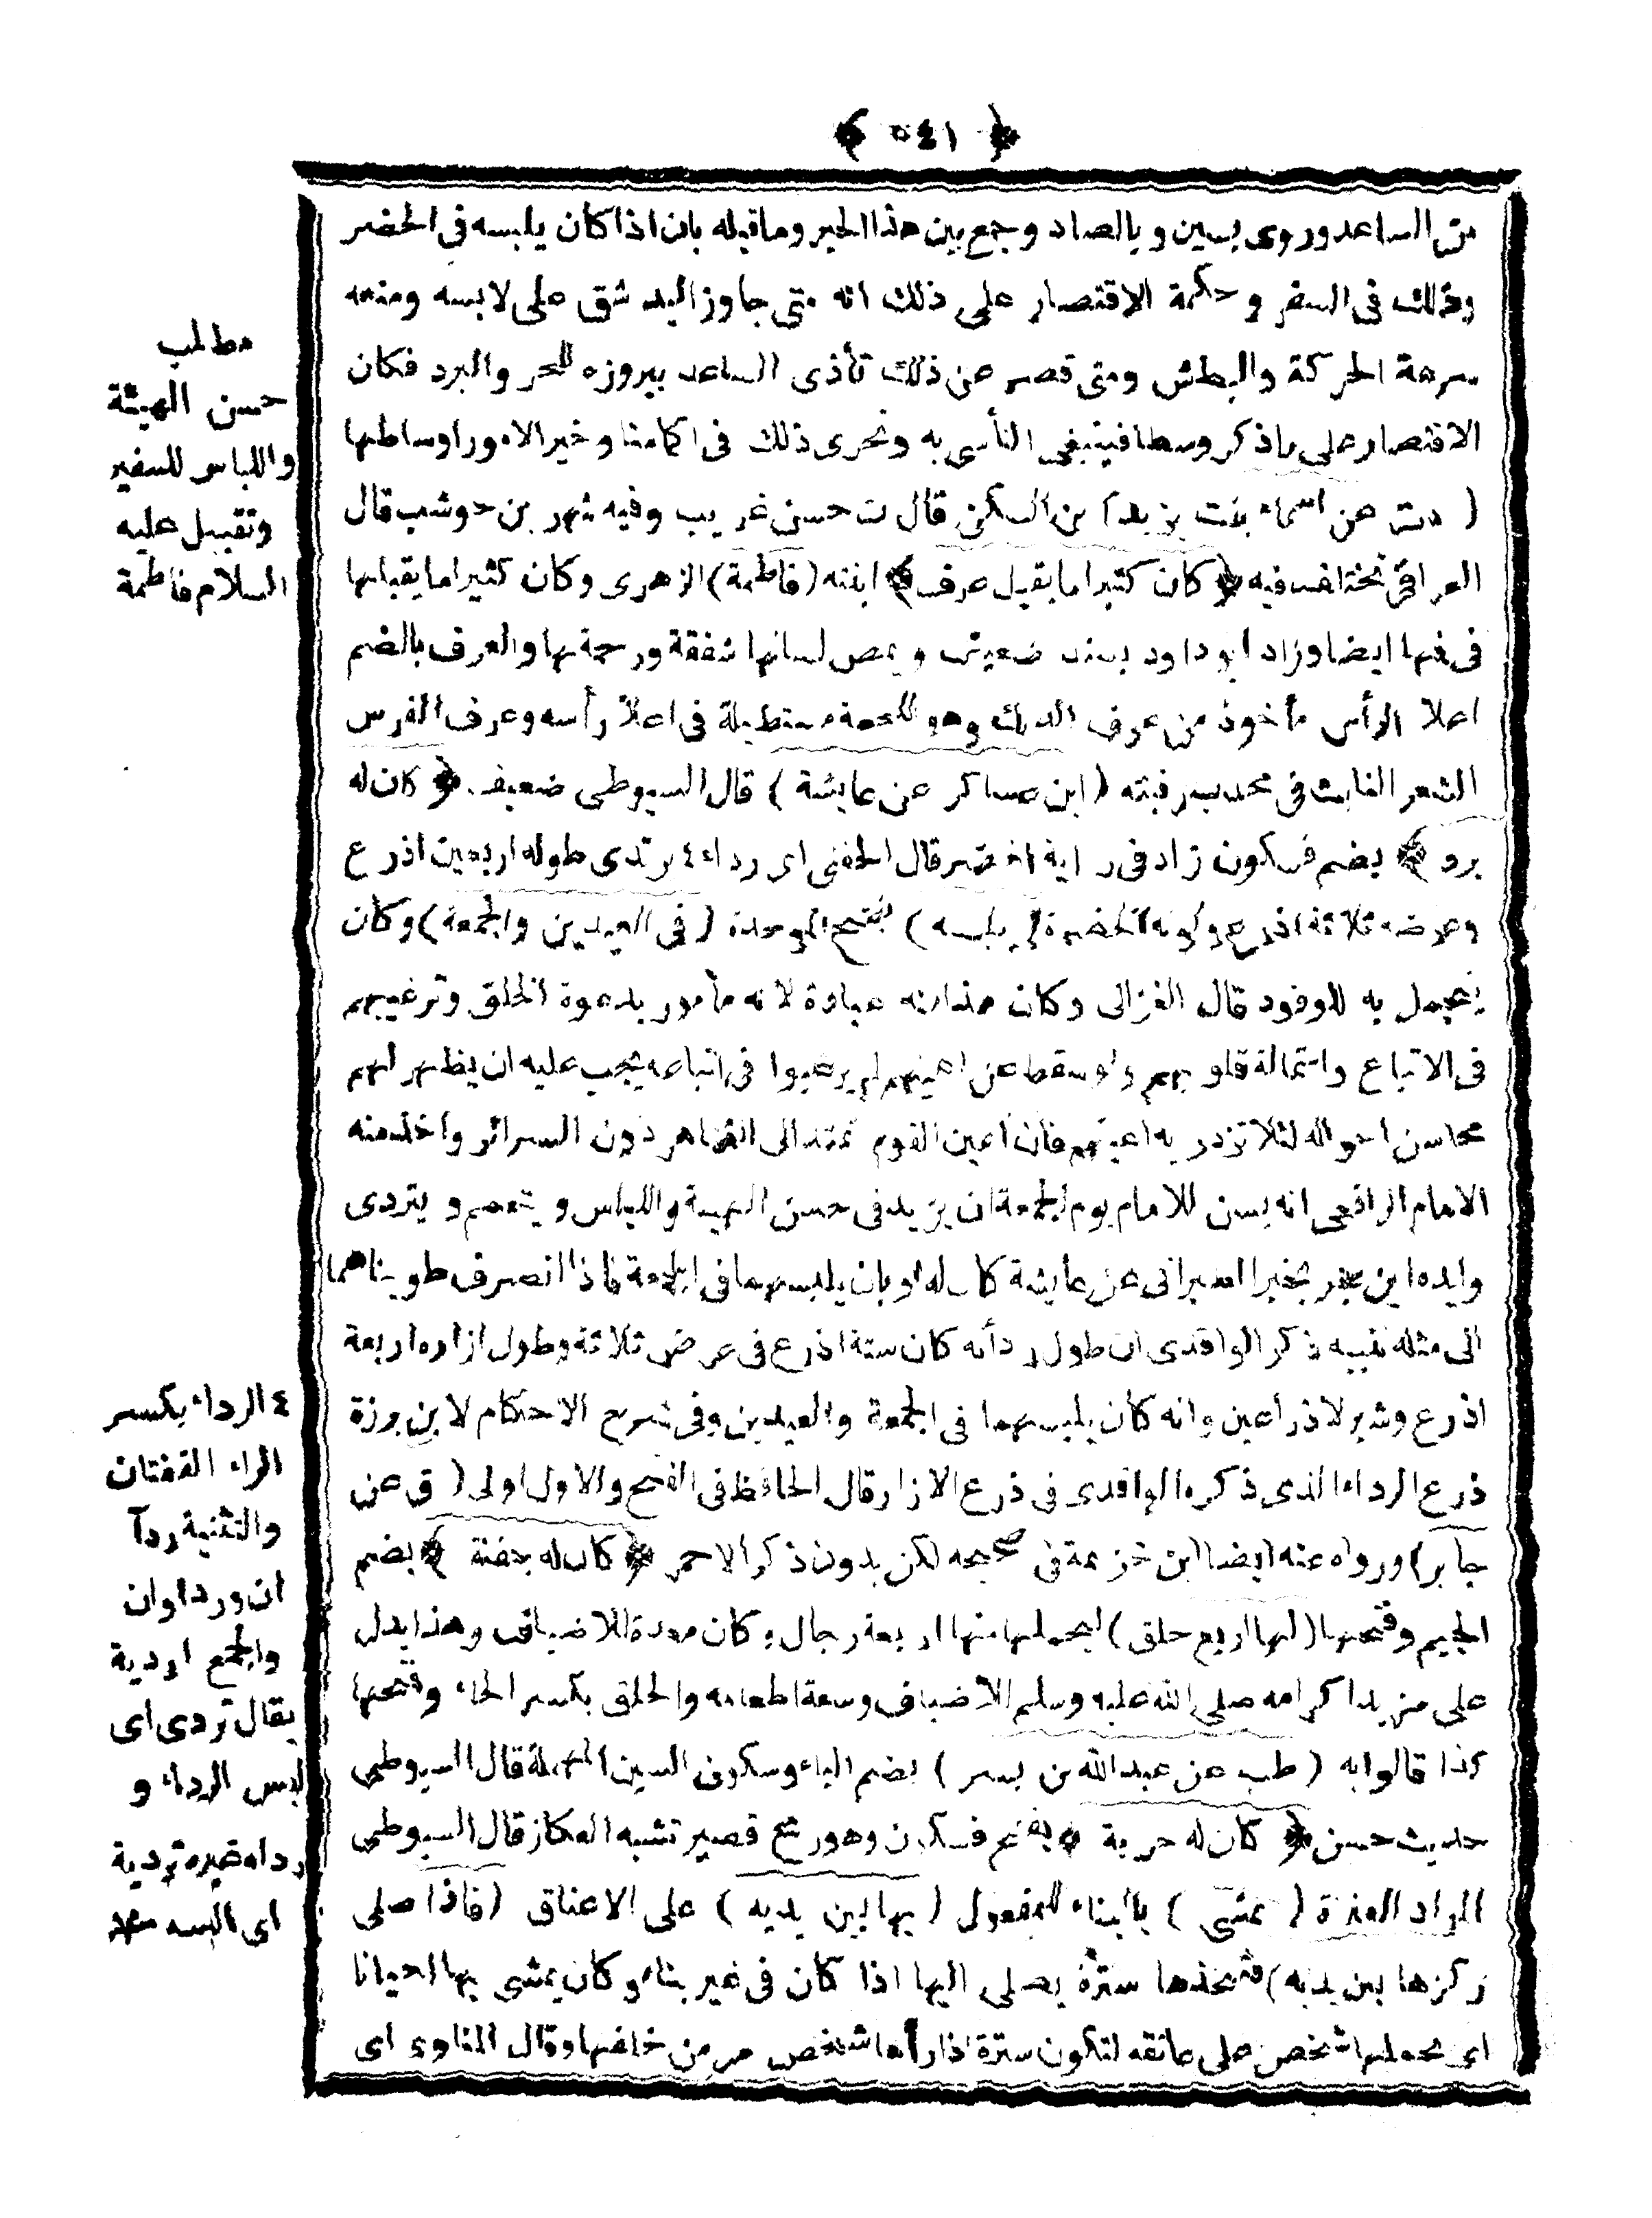 ﴿ ٥٤١ ﴾
من الساعد وروى بسين وبالصاد وجمع بين هذا الخبر وما قبله بان اذا كان يلبسه فى الحضر
وذلك فى السفر وحكمة الاقتصار على ذلك انه متى جاوز اليد شق على لابسه ومنعه
سرعة الحركة والبطش ومتى قصر عن ذلك تأذى الساعد ببروزه للحر والبرد فكان
الاقتصار على ماذكر وسطا فينبغى التأسى به ونحرى ذلك فى اكمامنا وخير الامور اوساطها
( دت عن اسماء بنت يزيد ) بن السكن قال ت حسن غريب وفيه شهر بن حوشب قال
العراقى مختلف فيه ﴿ كان كثيرا ما يقبل عرف ﴾ ابنته (فاطمة) الزهرى وكان كثيرا ما يقبلها
فى فمها ايضا وزاد ابو داود بسند ضعيف ويمص لسانها شفقة ورحمة بها والعرف بالضم
اعلا الرأس مأخوذ من عرف الديك وهو اللحمة مستطيلة فى اعلا رأسه وعرف الفرس
الشعر النابت فى محدب رقبته ( ابن عساكر عن عايشة ) قال السيوطى ضعيف ﴿ كان له
برد ﴾ بضم فسكون زاد فى راية اخضر قال الحفنى اى رداء ٤ يرتدى طوله اربعين اذرع
وعرضه ثلاثة اذرع ولونه الخضرة ( يلبسه ) بفتح الموحدة ( فى العيدين والجمعة ) وكان
يتجمل به للوفود قال الغزالى وكان هذا منه عبادة لانه مأمور بدعوة الخلق وترغيبهم
فى الاتباع واستمالة قلوبهم ولو سقط عن اعينهم لم يرغبوا فى اتباعه يجب عليه ان يظهر لهم
محاسن احواله لئلا تزدريه اعينهم فان اعين القوم تمتد الى الظاهر دون السرائر واخذ منه
الامام الرافعى انه يسن للامام يوم الجمعة ان يزيد فى حسن الهيئة واللباس ويتعمم ويتردى
وايده ابن حجر بخبر الطبرانى عن عايشة كان له ثوبان يلبسهما فى الجمعة فاذا انصرف طويناهما
الى مثله تنبيه ذكر الواقدى ان طول ردأئه كان ستة اذرع فى عرض ثلاثة وطول ازاره اربعة
اذرع وشبر لاذراعين وانه كان يلبسهما فى الجمعة والعيدين وفى شرح الاحكام لابن بزة
ذرع الرداء الذى ذكره الواقدى فى ذرع الازار قال الحافظ فى الفتح والاول اولى ( ق عن
جابر) ورواه عنه ايضا ابن خزيمة فى صحيحه لكن بدون ذكر الاحمر ﴿ كان له جفنة ﴾ بضم
الجيم وفتحها ( لها اربع حلق ) ليحملها منها اربعة رجال وكان معدة للاضياف وهذا يدل
على مزيد اكرامه صلى الله عليه وسلم للاضياف وسعة اطعامه والحلق بكسر الحاء وفتحها
كذا قالوا به ( طب عن عبد الله بن بسر ) بضم الباء وسكون السين المهملة قال السيوطى
حديث حسن ﴿ كان له حربة ﴾ بفتح فسكون وهو رمح قصير تشبه العكاز قال السيوطى
المراد العنزة ( يمشى ) بالبناء للمفعول ( بها بين يديه ) على الاعناق ( فاذا صلى
ركزها بين يديه ) فيتخذها سترة يصلى اليها اذا كان فى غير بناء وكان يمشى بها احيانا
اى يحملها شخص على عاتقه لتكون سترة اذا رأها شخص مر من خلفها وقال المناوى اى
مطلب
حسن الهيئة
واللباس للسفير
وتقبيل عليه
السلام فاطمة
٤ الرداء بكسر
الراء القفتان
والتثنية ردآ
ان ورداوان
والجمع اردية
يقال تردى اى
لبس الرداء و
رداه غيره تردية
اى البسه